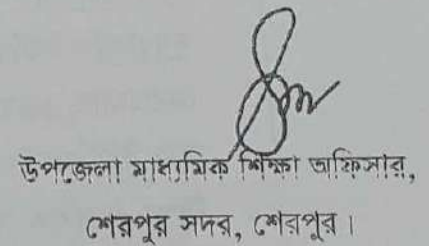 উপজেলা মাধ্যমিক শিক্ষা অফিসার,
শেরপুর সদর, শেরপুর।